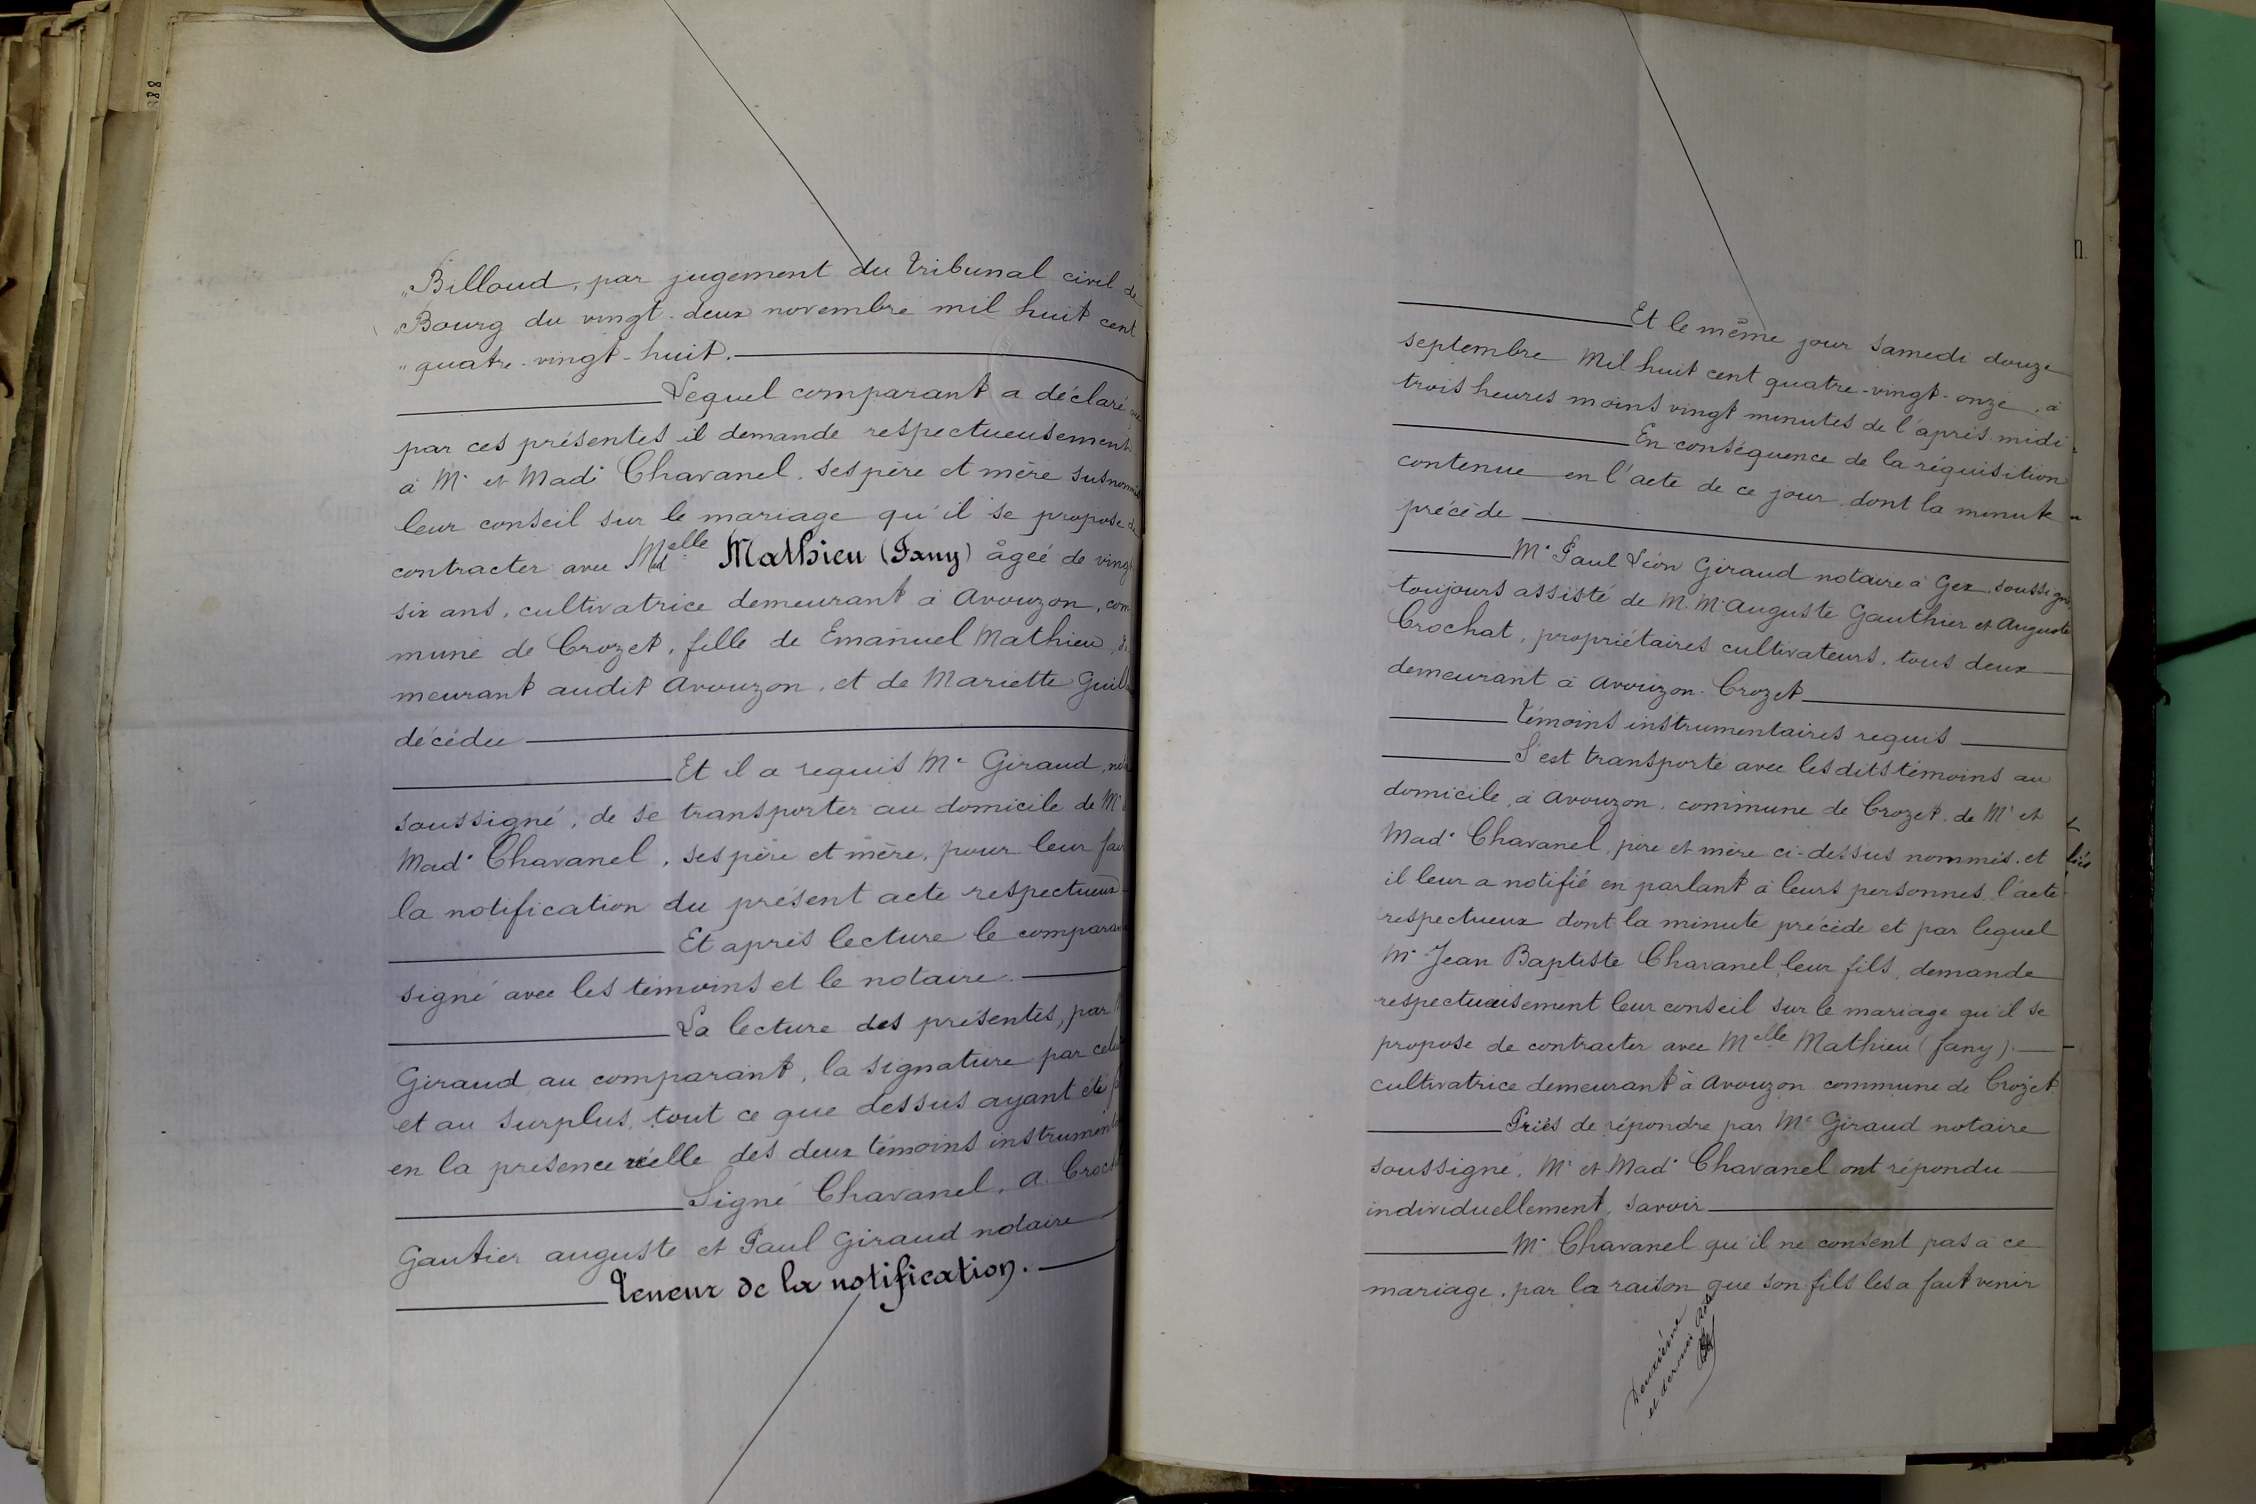 88
„ Billoud, par jugement du tribunal civil de
„ Bourg du vingt-deux novembre mil huit cent
„ quatre-vingt-huit.
Lequel comparant a déclaré que
par ces présentes il demande respectueusement
à Mr et Made Chavanel, ses père et mère susnommés
leur conseil sur le mariage qu'il se propose de
contracter avec Melle Mathieu (Fany) âgée de vingt
six ans, cultivatrice demeurant à Avouzon, com
mune de Crozet, fille de Emanuel Mathieu, de
meurant audit Avouzon, et de Mariette
décédée
Et il a requis Me Giraud,
soussigné, de se transporter au domicile de Mr
Made Chavanel, ses père et mère, pour leur fair
la notification du présent acte respectueux
Et après lecture le comparant
signé avec les témoins et le notaire.
La lecture des présentes, par
Giraud au comparant, la signature par celui
et au surplus, tout ce que dessus ayant été
en la présence réelle des deux témoins instrument
Signé Chavanel, A. Croch
Gautier auguste et Paul Giraud notaire
Teneur de la notification.
Et le même jour samedi douze
septembre Mil huit cent quatre-vingt-onze, à
trois heures moins vingt minutes de l'après-midi
En conséquence de la réquisition
contenue en l'acte de ce jour dont la minute
précède
Me Paul Léon Giraud notaire à Gex, soussigné,
toujours assisté de M. Mrs Auguste Gauthier et Auguste
Crochat, propriétaires cultivateurs, tous deux
demeurant à Avouzon-Crozet
témoins instrumentaires requis
S'est transporté avec lesdits témoins au
domicile, à Avouzon, commune de Crozet, de Mr et
Made Chavanel, père et mère ci-dessus nommés, et
il leur a notifié en parlant à leurs personnes, l'acte
respectueux dont la minute précède et par lequel
Mr Jean Baptiste Chavanel, leur fils, demande
respectueusement leur conseil sur le mariage qu'il se
propose de contracter avec Melle Mathieu (fany).
cultivatrice demeurant à Avouzon commune de Crozet.
Priés de répondre par Me Giraud notaire
soussigné, Mr et Made Chavanel ont répondu
individuellement, savoir
Mr Chavanel qu'il ne consent pas à ce
mariage, par la raison que son fils les a fait venir
Deuxième
et dernier rôle